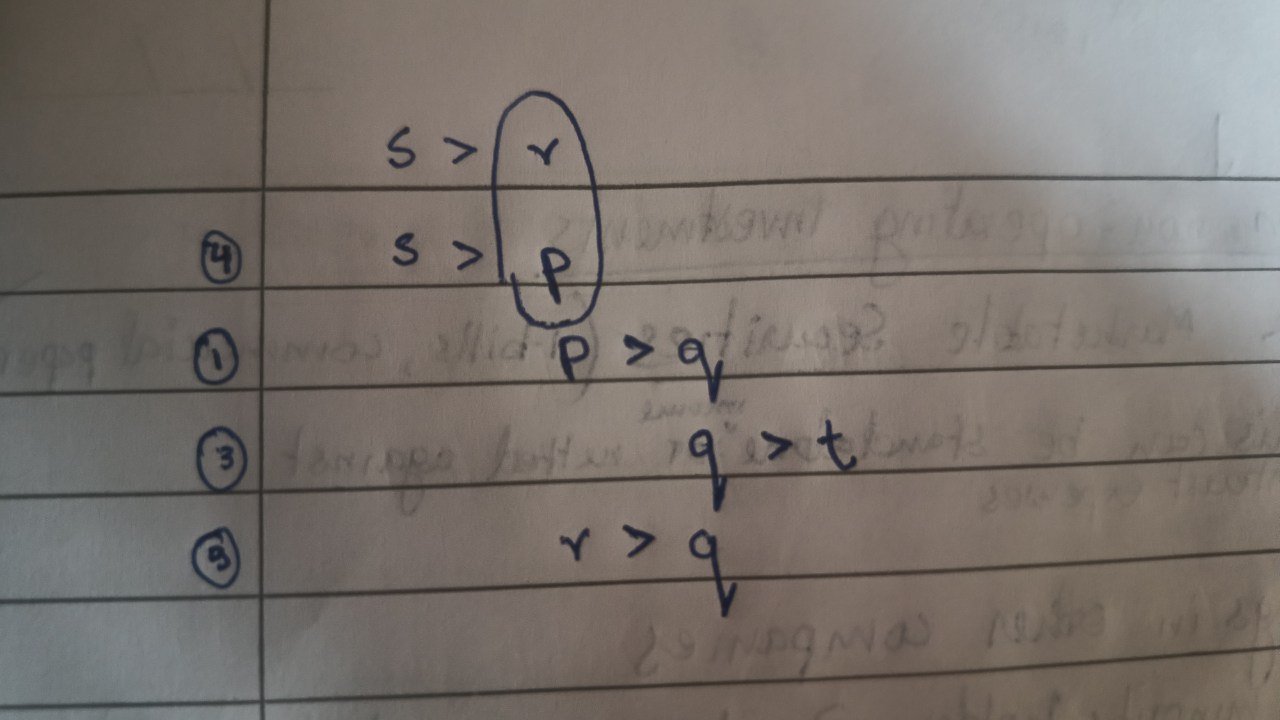 s > r
④ s > p
① p > q
③ q > t
r > q